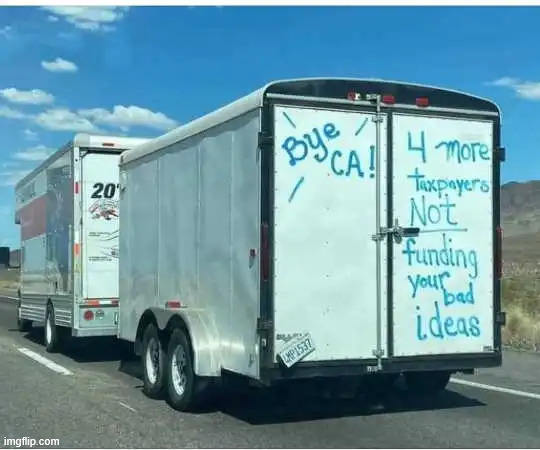 20'
Bye
CA!
4 more
taxpayers
Not
funding
your
bad
ideas
imgflip.com